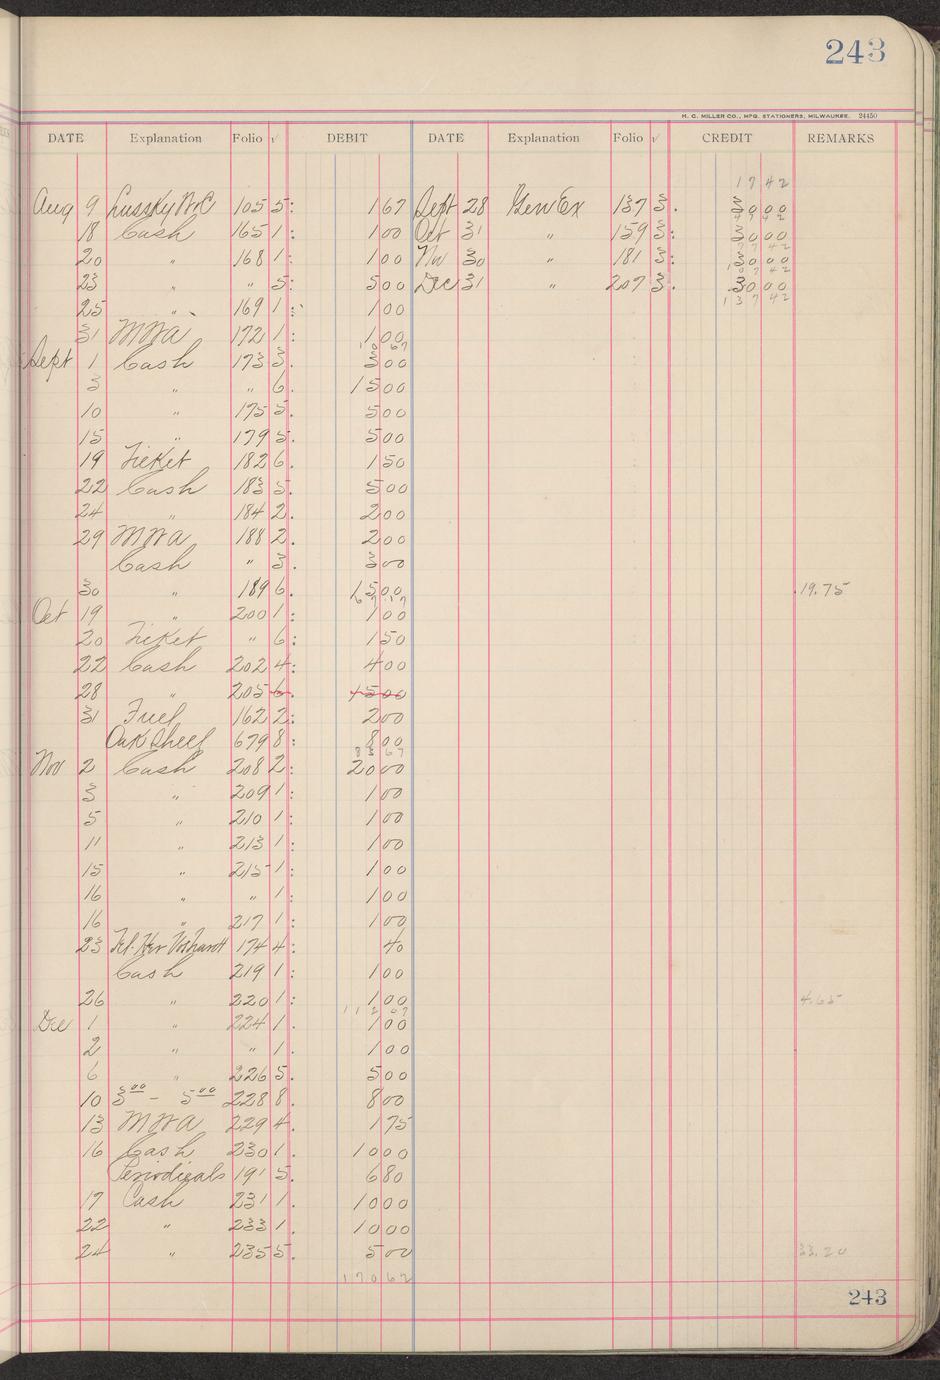 243
H. C. MILLER CO., MFG. STATIONERS, MILWAUKEE. 24450
DATE Explanation Folio √ DEBIT DATE Explanation Folio √ CREDIT REMARKS
17 42
Aug 9 105 5: 1 67 Sept 28 Gen Ex 137 3. 30 00
47 42
18 Cash 165 1: 1 00 Oct 31 " 159 3: 30 00
77 42
20 " 168 1: 1 00 Nov 30 " 181 3: 30 00
107 42
23 " " 5: 5 00 Dec 31 " 207 3. 30 00
137 42
25 " 169 1: 1 00
31 MWA 172 1: 1 00
10 67
Sept 1 Cash 173 3. 3 00
3 " " 6. 15 00
10 " 175 5. 5 00
15 " 179 5. 5 00
19 Ticket 182 6. 1 50
22 Cash 183 5. 5 00
24 " 184 2. 2 00
29 MWA 188 2. 2 00
Cash " 3. 3 00
30 " 189 6. 15 00 19.75
67 17
Oct 19 " 200 1: 1 00
20 Ticket " 6: 1 50
22 Cash 202 4: 4 00
28 " 205 6. 15 00
31 Fuel 162 2: 2 00
Oak Sheet 679 8: 8 00
83 67
Nov 2 Cash 208 2: 20 00
3 " 209 1: 1 00
5 " 210 1: 1 00
11 " 213 1: 1 00
15 " 215 1: 1 00
16 " " 1: 1 00
16 " 217 1: 1 00
23 Tel. 174 4: 40
Cash 219 1: 1 00
26 " 220 1: 1 00 4.65
112 07
Dec 1 " 224 1. 1 00
2 " " 1. 1 00
6 " 226 5. 5 00
10 3 00 - 5 00 228 8. 8 00
13 MWA 229 4. 1 75
16 Cash 230 1. 10 00
Periodicals 191 5. 6 80
17 Cash 231 1. 10 00
22 " 233 1. 10 00
24 " 235 5. 5 00 33.20
170 62
243